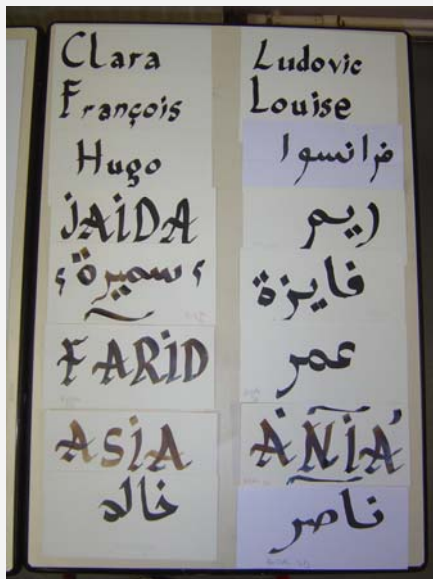 Clara
François
Hugo
JAIDA
سميرة
FARID
ASIA
خالد
Ludovic
Louise
فرانسوا
ريم
فايزة
عمر
ANIA
ناصر